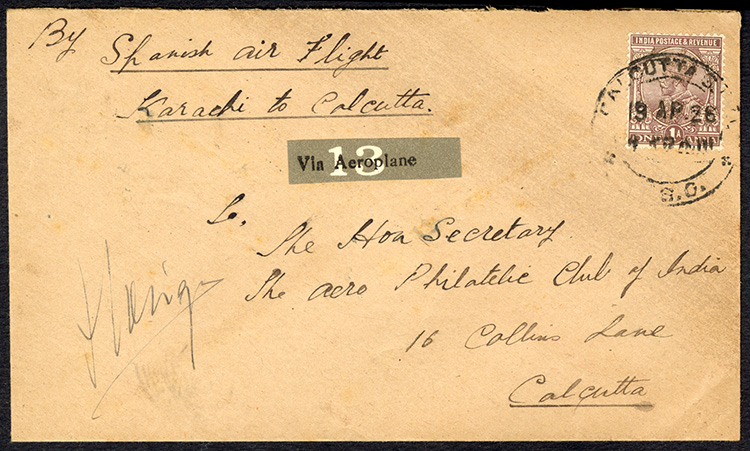 By Spanish air Flight
Karachi to Calcutta.
INDIA POSTAGE & REVENUE
CALCUTTA
19 AP. 26
S.O.
13
Via Aeroplane
To.
The Hon Secretary
The aero Philatelic Club of India
16 Collins Lane
Calcutta